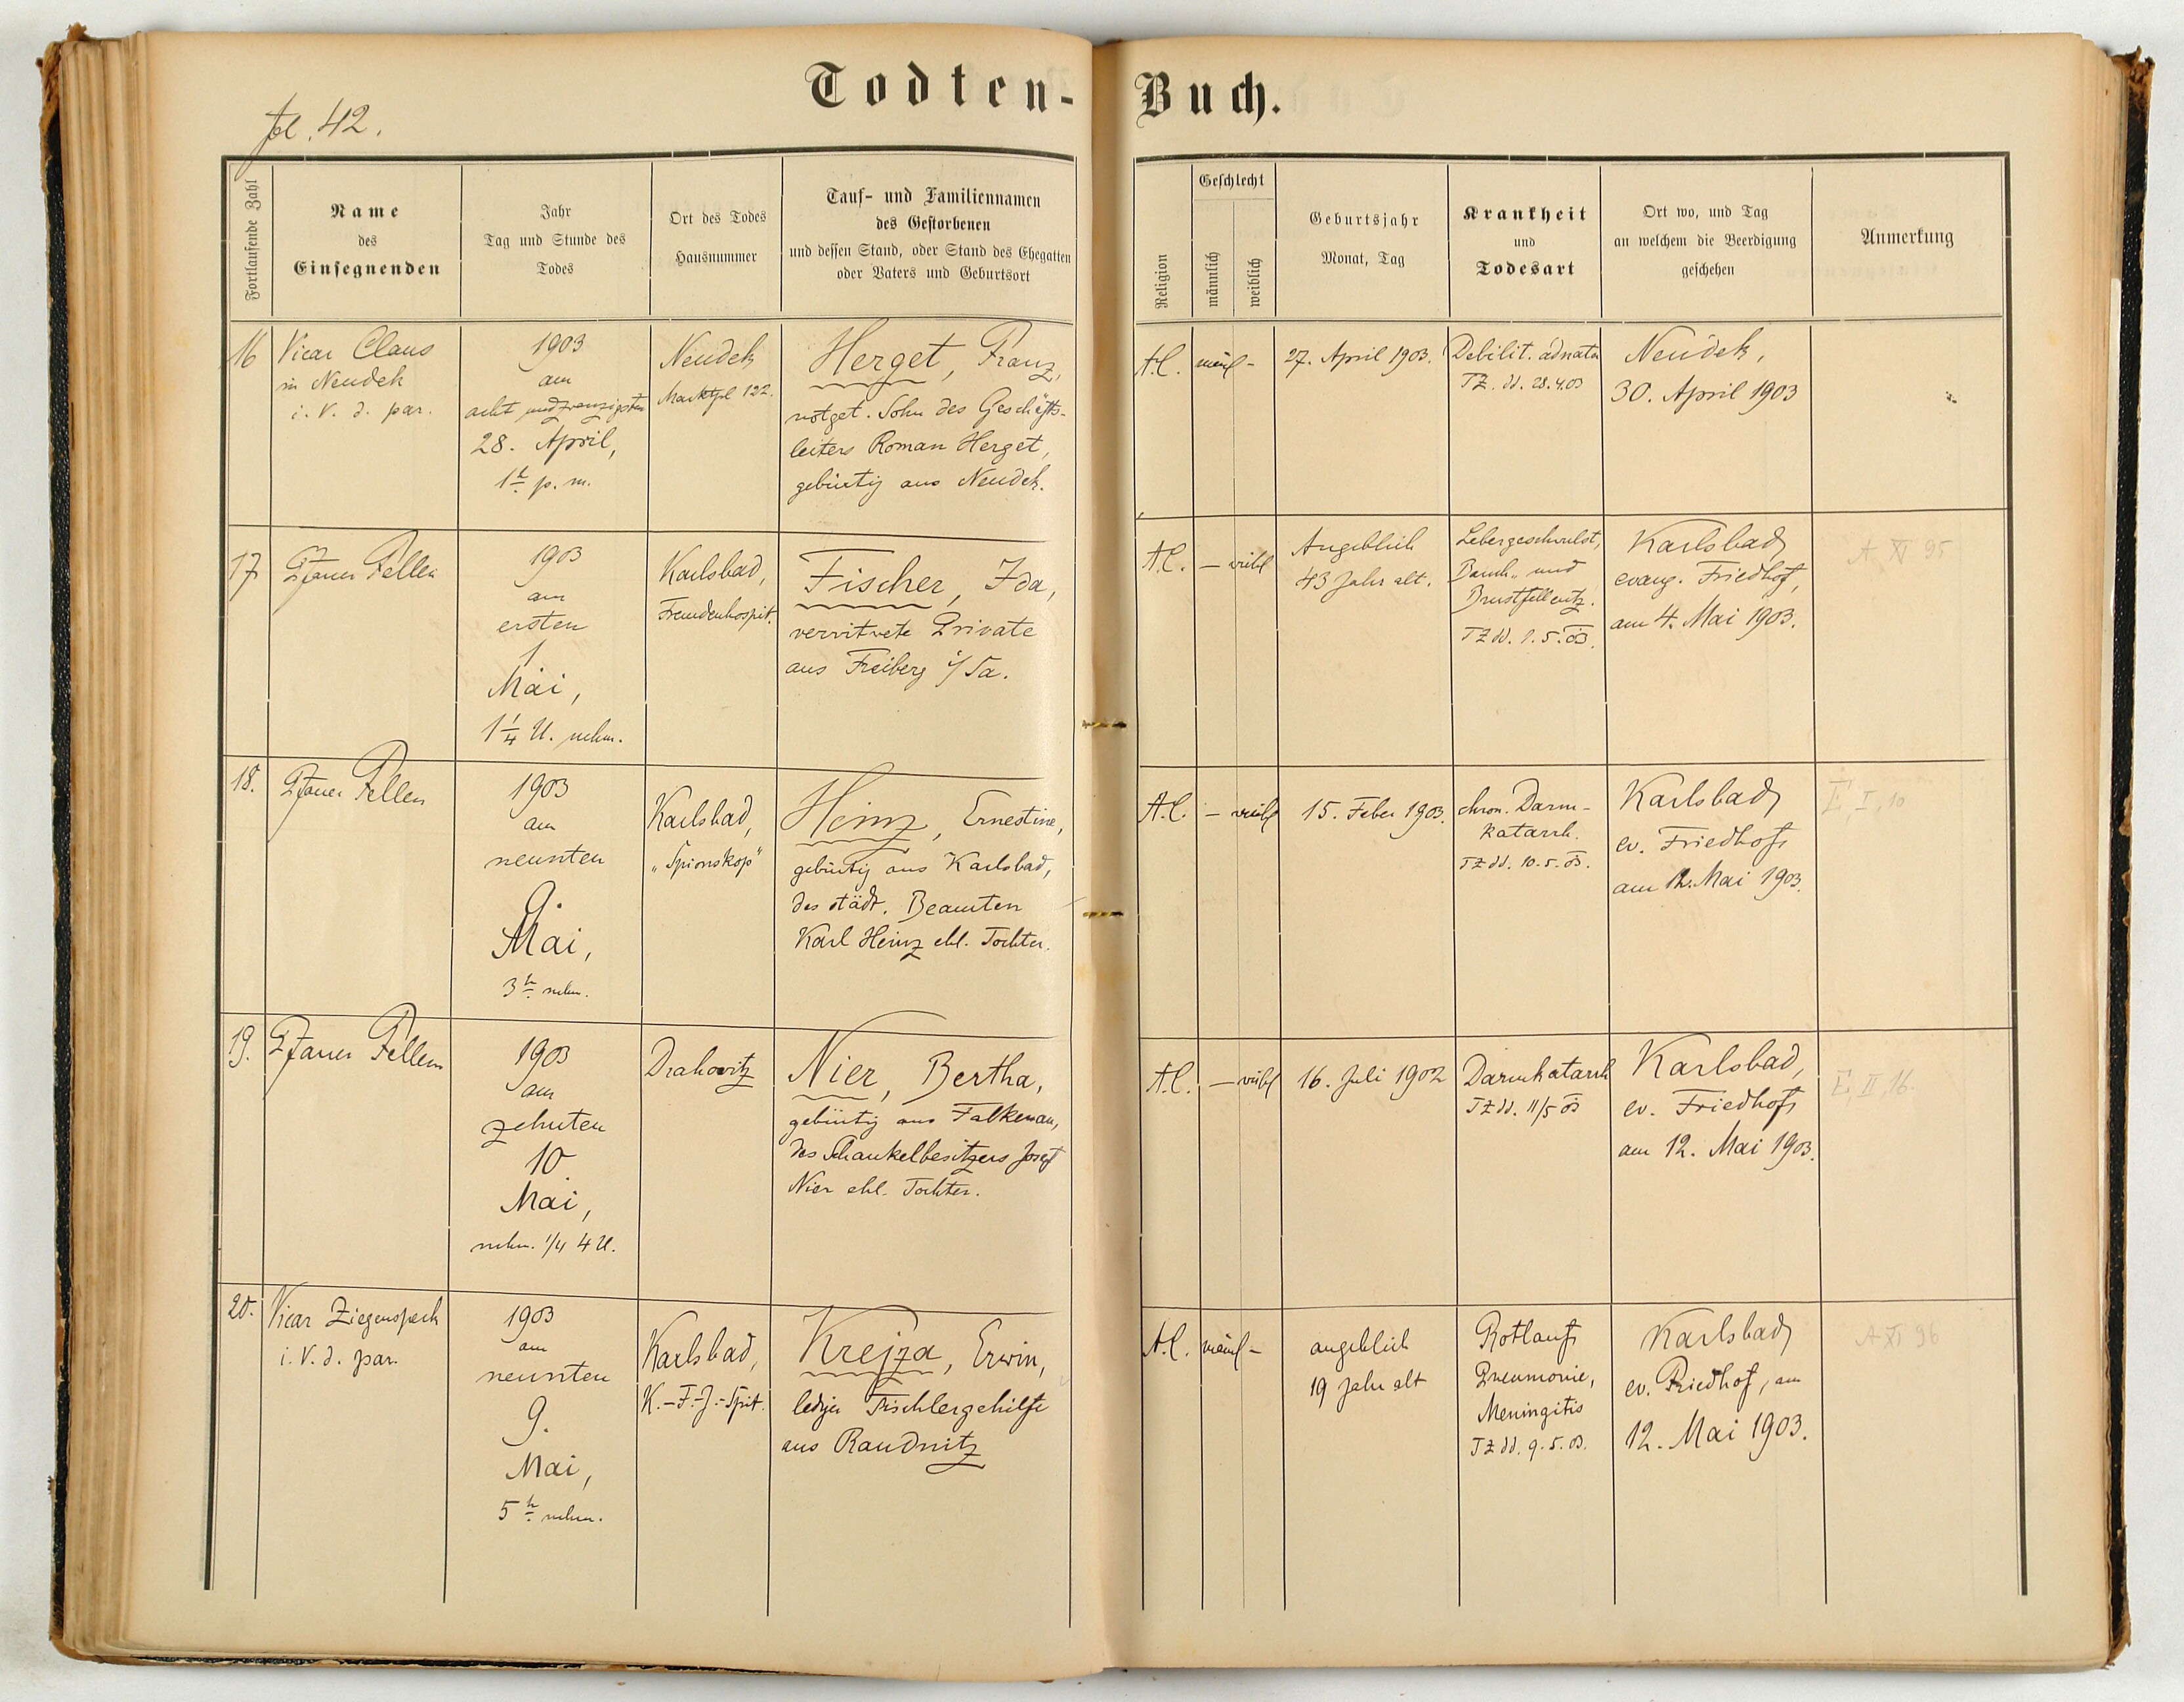 Todten-Buch.
fol. 42.
Fortlaufende Zahl
Name
des
Einsegnenden
Jahr
Tag und Stunde des
Todes
Ort des Todes
Hausnummer
Tauf- und Familiennamen
des Gestorbenen
und dessen Stand, oder Stand des Ehegatten
oder Vaters und Geburtsort
Religion
Geschlecht
männlich
weiblich
Geburtsjahr
Monat, Tag
Krankheit
und
Todesart
Ort wo, und Tag
an welchem die Beerdigung
geschehen
Anmerkung
16
Vicar Claus
in Neudek
i. V. d. par.
1903
am
acht und zwanzigsten
28. April,
1h p. m.
Neudek
Marktpl 122.
Herget, Franz,
notget. Sohn des Geschäfts-
leiters Roman Herget,
gebürtig aus Neudek.
A.C.
männl -
27. April 1903.
Debilit. adnata
TZ. dd. 28.4.03
Neudek,
30. April 1903
17
Pfarrer Fellen
1903
am
ersten
1
Mai,
1 1/4 U. nchm.
Karlsbad,
Fremdenhospit.
Fischer, Ida,
verwitwete Private
aus Freiberg i/Sa.
A.C.
- weibl
Angeblich
43 Jahr alt.
Lebergeschwulst,
Bauch- und
Brustfellentz.
TZ dd. 1.5.03.
Karlsbad
evang. Friedhof,
am 4. Mai 1903.
A XI 95
18.
Pfarrer Fellen
1903
am
neunten
9.
Mai,
3h nchm.
Karlsbad,
"Spionskop"
Heinz, Ernestine,
gebürtig aus Karlsbad,
des städt. Beamten
Karl Heinz ehl. Tochter.
A.C.
- weibl
15. Feber 1903.
chron. Darm-
katarrh.
TZ dd. 10.5.03.
Karlsbad
ev. Friedhof
am 12. Mai 1903.
E I, 10
19.
Pfarrer Fellen
1903
am
zehnten
10
Mai,
nchm. 1/4 4 U.
Drahowitz
Nier, Bertha,
gebürtig aus Falkenau,
des Schaukelbesitzers Josef
Nier ehl. Tochter.
A.C.
- weibl
16. Juli 1902
Darmkatarrh
TZ dd. 11/5 03
Karlsbad,
ev. Friedhof
am 12. Mai 1903.
E, II, 16.
20.
Vicar Ziegenspeck
i. V. d. par.
1903
am
neunten
9.
Mai,
5h nchm.
Karlsbad,
K.-F.-J.-Spit.
Krejza, Erwin,
lediger Tischlergehilfe
aus Raudnitz
A.C.
männl -
angeblich
19 Jahr alt
Rotlauf
Pneumonie,
Meningitis
TZ dd. 9.5.03.
Karlsbad
ev. Friedhof, am
12. Mai 1903.
A XI 96